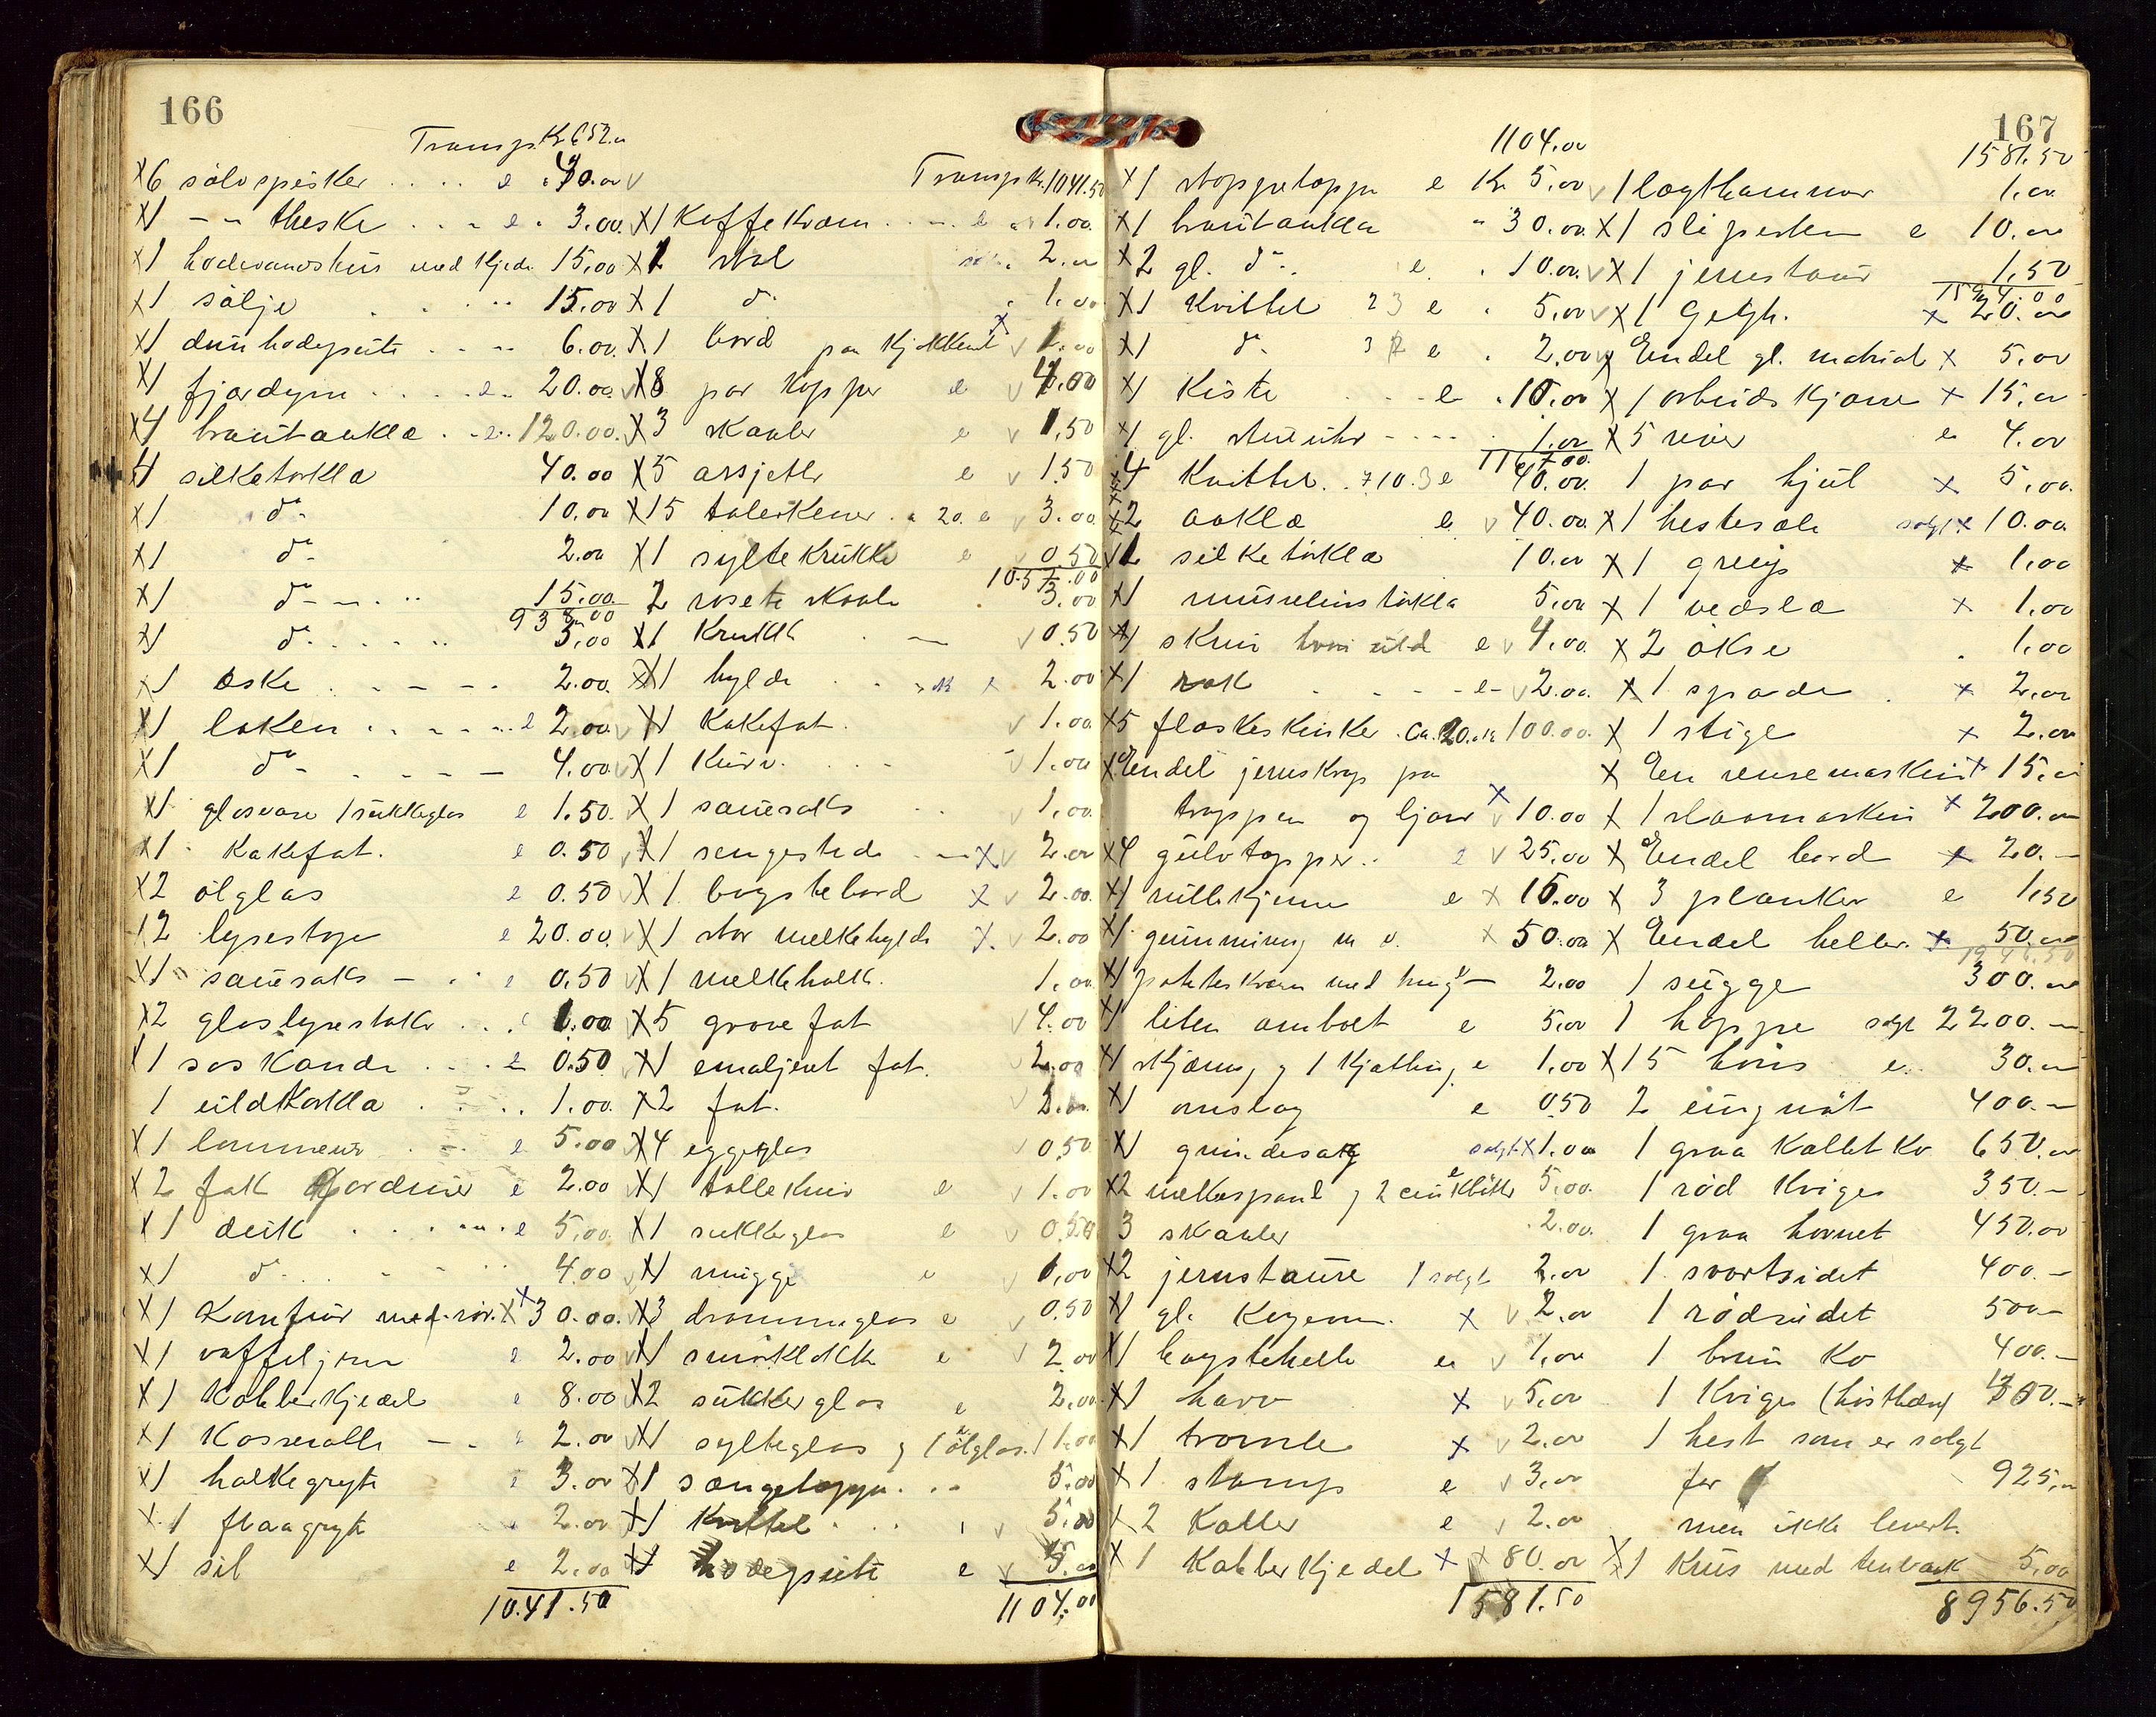 166
Transp. Kr. 652.00
X6 sölvspisker .... e . 40.00 v
X1 -"- theske . . - e . 3.00.
X1 hodevandshus med Kjede 15,00
X1 sölje . . . .. 15.00
X1 dunhodepute . - - .. 6.00.
X1 fjærdyne . . . . e.. 20.00. v
X4 brautaakla . . e .. 120.00.
4 silketörkla 40.00
X1 do. 10.00
X1 do. 2.00
X1 do - - . .. 15.00.
938.00
X1 do . . . . .. 3,00
X1 æske . . - - - . 2.00.
X1 laken . . - - - .. e 2.00 v
X1 do - . - - - - 4.00. v
X1 glasvase 1 sukkeglas e 1.50.
X1 Kakefat. e 0.50 v
X2 ölglas e 0.50 v
12 lysestage e 20.00. v
X1 sauesaks - . . e 0,50
X2 glaslysestake . . . e 1.00
X1 saskande . . . e 0.50
1 uldtörkla . . . . . 1.00.
X1 lommeur . . - . e 5.00
X2 fak Gardiner e 2.00
X1 duk . . . . ... e 5,00.
X1 do . . . - - .. 4.00 v
X1 Komfur med rör. X X 30.00. v
X1 vaffeljern e 2.00 v
X1 Kobberkjedel e 8.00
X1 Kasserolle - - . e 2.00 v
X1 hakkegryte e 3.00
X1 flaagryte e 2.00
X1 sil e 2.00
1041.50
Transp Kr. 1041.50
X1 Kaffekværn . . - . e 1.00.
X1 stol 2.00
X1 do . 1.00
X1 bord paa Kjökkenet X v 1.00
X8 par kopper e v 4.00
X3 skaaler e v 1,50
X5 asjetter e v 1.50
X15 talerkener . a 20. e v 3.00
X1 syltekrukke e v 0.50
1057.00
2 rosete skaale . 3.00
X1 Krukke . - v 0.50
X1 hylde . . . X 2.00
X1 Kakefat. v 1.00
X1 Kurv. . . . - v 1.00
X1 sauesaks . v 1.00.
X1 sengested - - X v 2.00
X1 bogstebord X v 2.00.
X1 stor melkehylde X. v 2.00
X1 melkeholk. 1.00.
X5 grove fat v 4.00
X1 emaljeret fat. 2.00
X2 fat. v 1.00.
X4 eggeglas v 0,50
X1 tollekniv e v 1.00
X1 sukkerglas e v 0.50
X1 mugge e v 1,00
X3 dramneglas e v 0.50
X1 smörklokke e v 2.00
X2 sukkerglas e 2,00
X1 sylteglas og 1 ölglas. 1.00
X1 sængeteppe . . . 5.00
X1 Kvittel . . . . v 5.00
X1 hodepute e v 5.00
1104.00
167
1104.00
X1 stoppeteppe e Kr. 5.00 v
X1 brautaakla " 30.00.
X2 gl. do.. e. . 10.00. v
X1 Kvittel 23 e . 5,00 v
X1 do. 3 e . 2,00
X1 Kiste . . - e . 10.00
X1 gl. stueuhr - - - - . 1.00
1167.00
X4 Kvittel. . 710.3 e 40.00.
X2 aakla e v 40.00
X1 silketörkla 10.00
X1 musselinstörkla 5,00
X1 skind hvori uld e v 4,00.
X1 rok . - - - e - v 2.00.
X5 flaskeskinker . Ca. 20. 100.00.
X Endel jernskrap paa
trappen og ljaar X v 10.00
X4 gulvtepper . . e v 25.00
X1 rullekjerne e X 15.00
X1 gumming m v. X 50.00
X1 poteteskværn med - 2.00
X1 liten ambolt e 5,00
X1 skjæring og 1 Kjetting e 1.00
X1 omslag e 0,50
X1 grindesag solgt X 1.00
X2 melkespand og 2 5.00.
3 skaaler . 2.00.
X2 jernstaure 1 solgt 2.00
X1 gl. X v 2.00
X1 bogstehelle e v 1,00
X1 harv X v 5,00
X1 tromle X v 2.00
X1 stamp e v 3,00
X2 Koller e v 2.00
X1 Kobberkjedel X X 80.00
1581.50
1581.50
1 lægthammer 1,00.
X1 slipesten e 10.00
X1 jernstaur 1,50
1594.00
X1 X 20.00
X Endel gl. matrial X 5.00
X 1 arbeidskjærre X 15.00
X5 river e 4.00
1 par hjul X 5,00.
X1 hestesæle solgt X 10.00
X1 greip X 1.00
X1 vedslæ X 1.00
X2 ökse . 1.00
X1 spade . X 2,00
X 1 stige X 2.00
X En rensemaskin X 15.00
X 1 slaamaskin X 200.00
X Endel bord X 20.-
X 3 planker e 1,50
X Endel heller. X 50.00
1946.50
1 sugge 300.00
1 hoppe solgt 2200.-
X15 höns e.. 30.00
2 ungnöt 400.-
1 graa Kollet Ko 650.00
1 röd Kvige 350.-
1 graa hornet 450.00
1. svartsidet 400.-
1 rödsidet 500-
1 brun Ko 400.-
1 Kvige (hostbær)
1 hest som er solgt
for 925,00
men ikke levert.
X1 Krus med tenlaak 5,00
8956.50